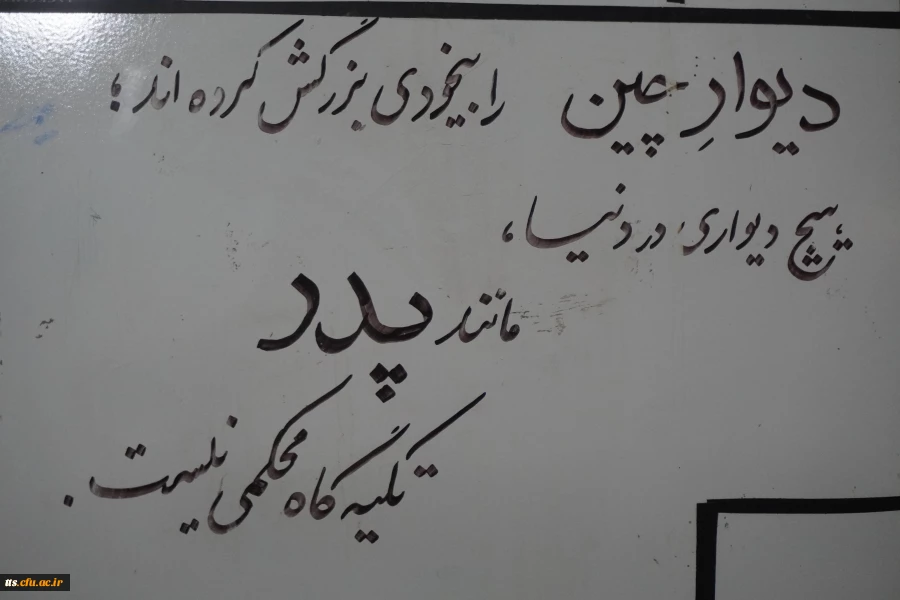 دیوارِ چین را بیخودی بزرگش کرده اند؛
هیچ دیواری در دنیا،
مانند پدر
تکیه گاه محکمی نیست.
tts.cfu.ac.ir